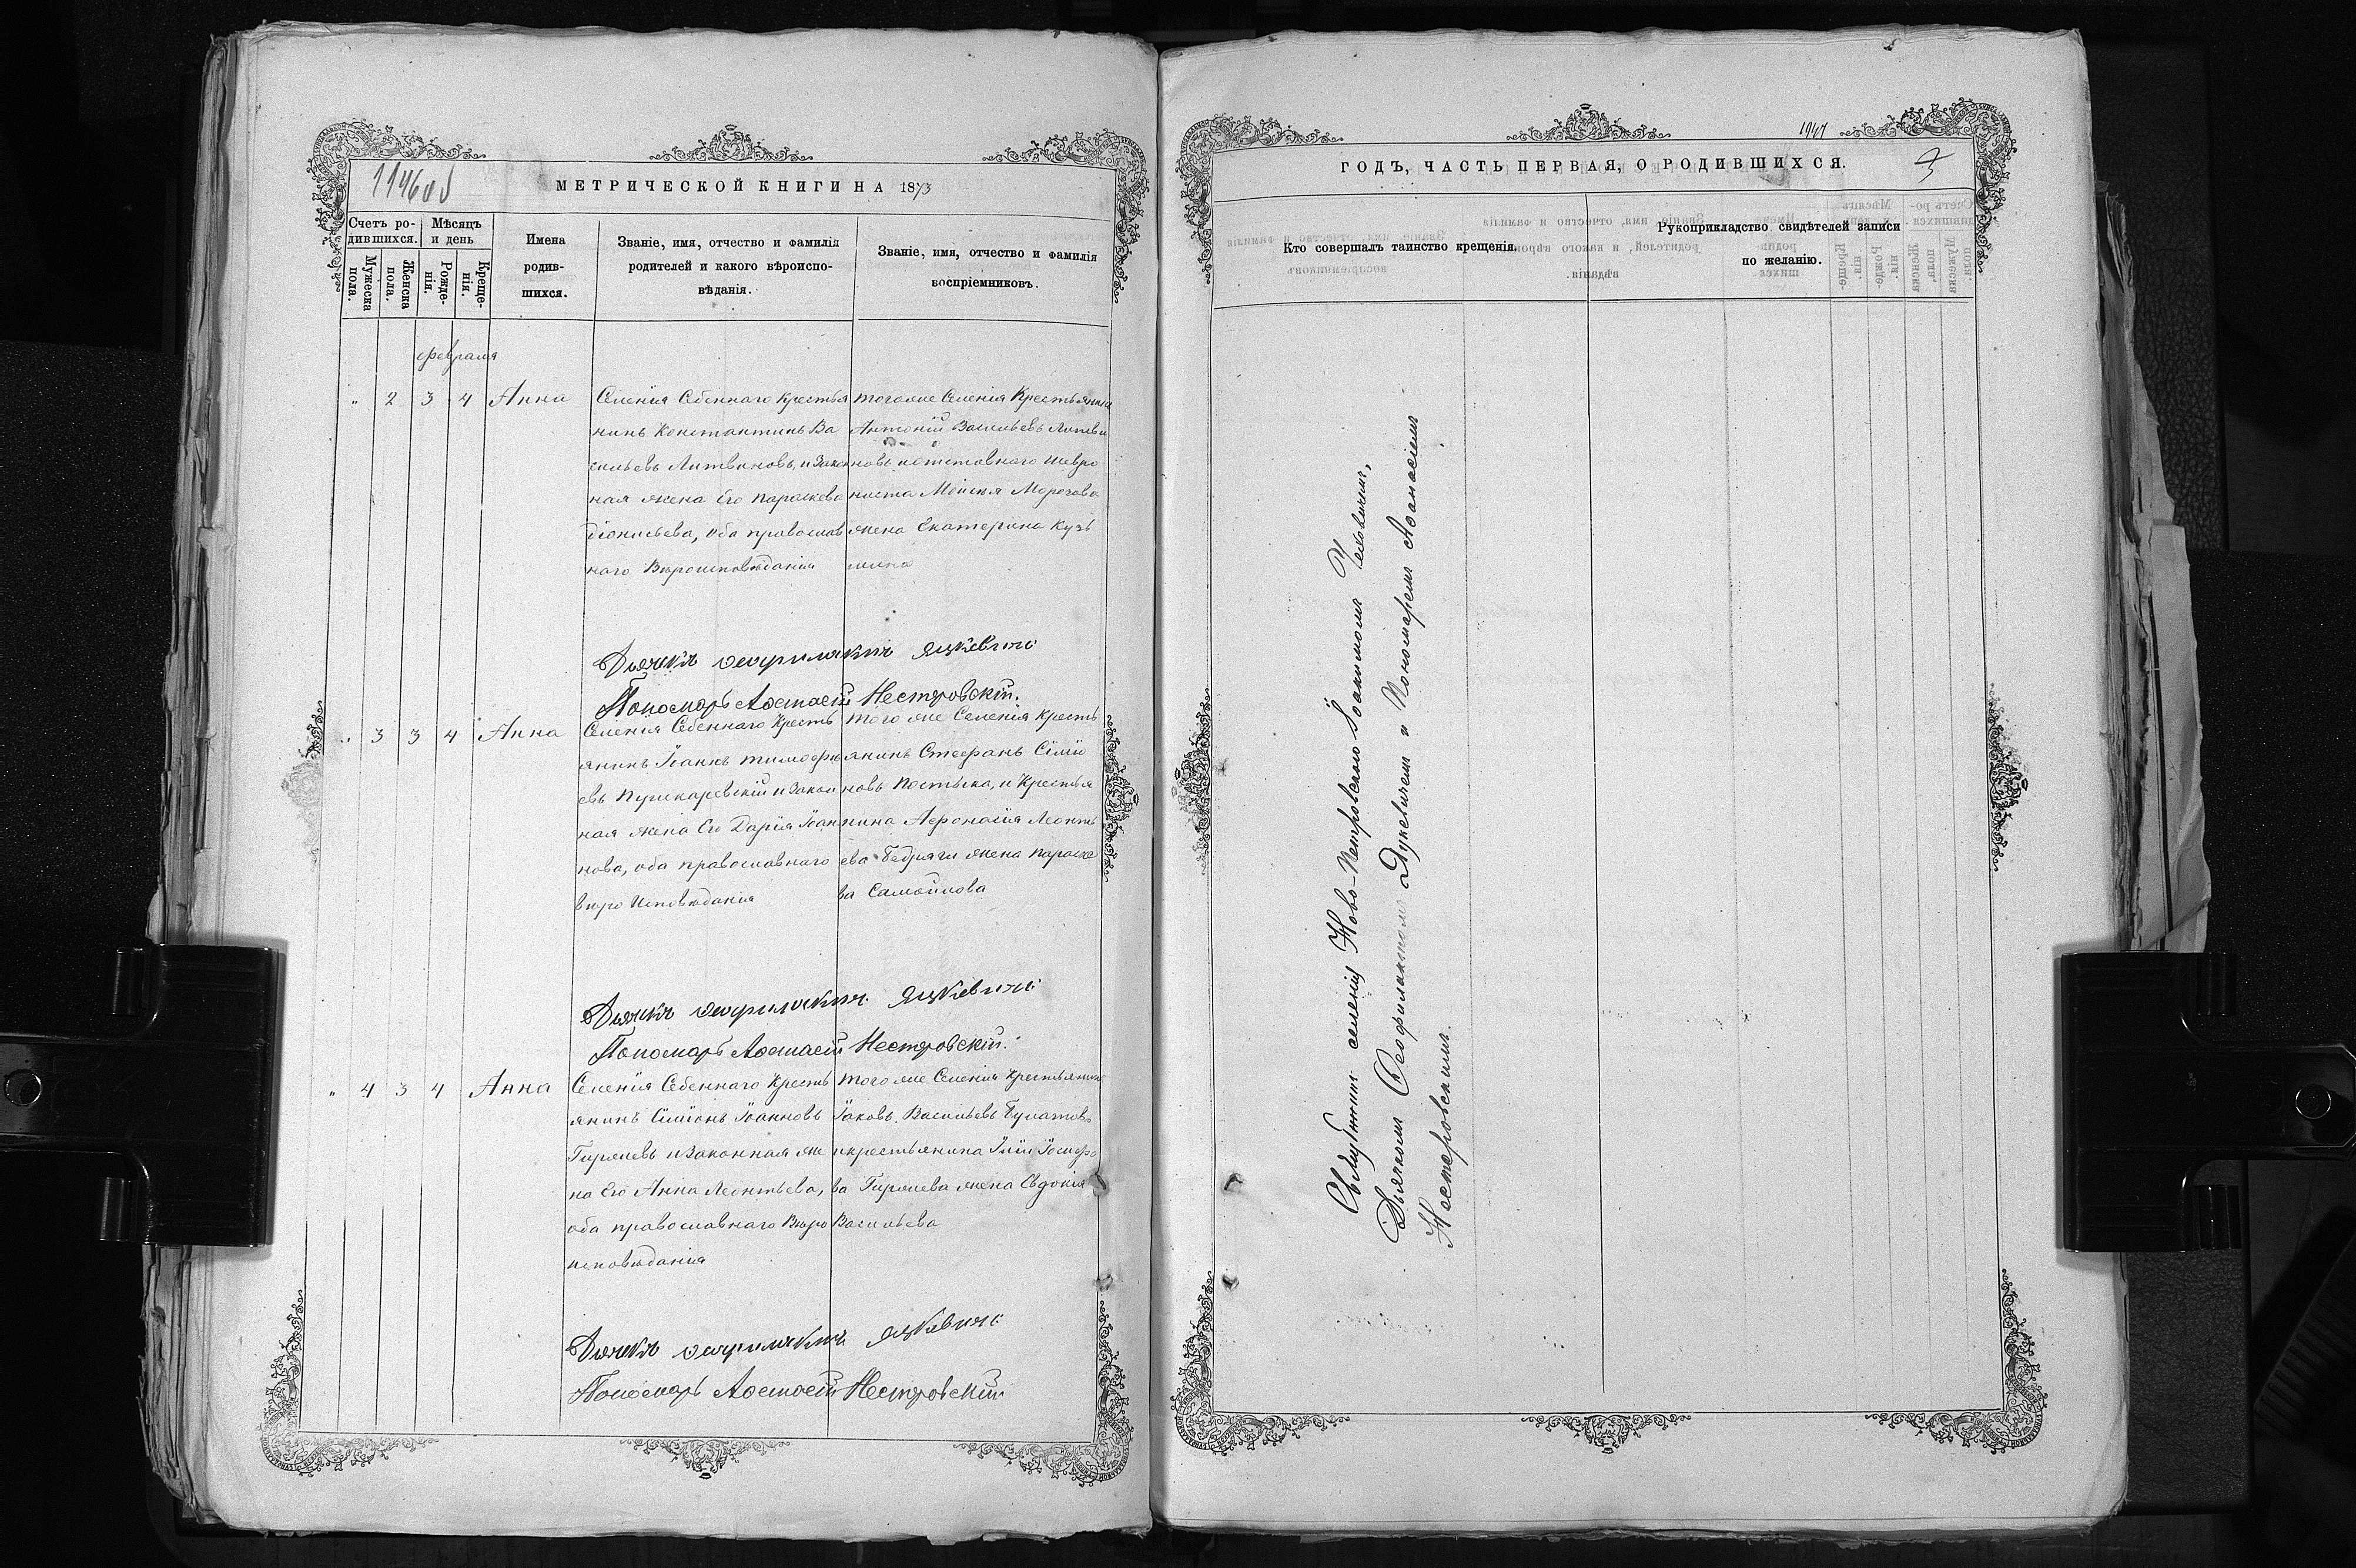 МЕТРИЧЕСКОЙ КНИГИ НА 1873
Счетъ ро-
дившихся.
Мѣсяцъ
и день
Мужеска
пола.
Женска
пола.
Рожде-
нія.
Креще-
нія.
Имена
родив-
шихся.
Званіе, имя, отчество и фамилія
родителей и какого вѣроиспо-
вѣданія.
Званіе, имя, отчество и фамилія
воспріемниковъ.
февраля
" 2 3 4 Анна
Селенія Себеннаго Крестья
нинъ Константинъ Ва
сильевъ Литвиновъ, и Закон
ная жена Его Параскева
Діонисьева, Оба православ
наго Вѣроисповѣданія
тогоже Селенія Крестьянинъ
Антоній Васильевъ Литви
новъ и отставнаго
Моисея Морозова
жена Екатерина Кузь
мина
Дьячекъ Ѳеофилактъ
Пономарь Аѳанасій Нестеровскій.
" 3 3 4 Анна
Селенія Себеннаго Кресть
янинъ Іоаннъ Тимофѣ
евъ Пушкаревскій и Закон
ная жена Его Дарія Іоан
нова, оба православнаго
вѣро Исповѣданія
того же Селенія Кресть
янинъ Стефанъ Сімео
новъ и Крестья
нина Афонасія Леонть
ева жена Параске
ва Самойлова
Дьячекъ Ѳеофилактъ
Пономарь Аѳанасій Нестеровскій.
" 4 3 4 Анна
Селенія Себеннаго Кресть
янинъ Сімеонъ Іоанновъ
и Законная же
на Его Анна Леонтьева,
оба православнаго Вѣро
исповѣданія
Того же Селенія Крестьянинъ
Іаковъ Васильевъ Булатовъ
и крестьянина Іліи Іосифо
ва жена Евдокія
Васильева
Дьячекъ Ѳеофилактъ
Пономарь Аѳанасій Нестеровскій
ГОДЪ, ЧАСТЬ ПЕРВАЯ, О РОДИВШИХСЯ.
Кто совершалъ таинство крещенія.
Рукоприкладство свидѣтелей записи
по желанію.
селенія Ново-Петровского Іоакимомъ
Дьячкомъ Ѳеофилактомъ и Пономаремъ Аѳанасіемъ
Нестеровскимъ.